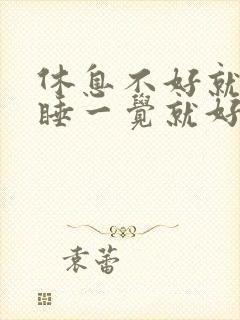 休息不好就
睡一覺就好
袁蕾